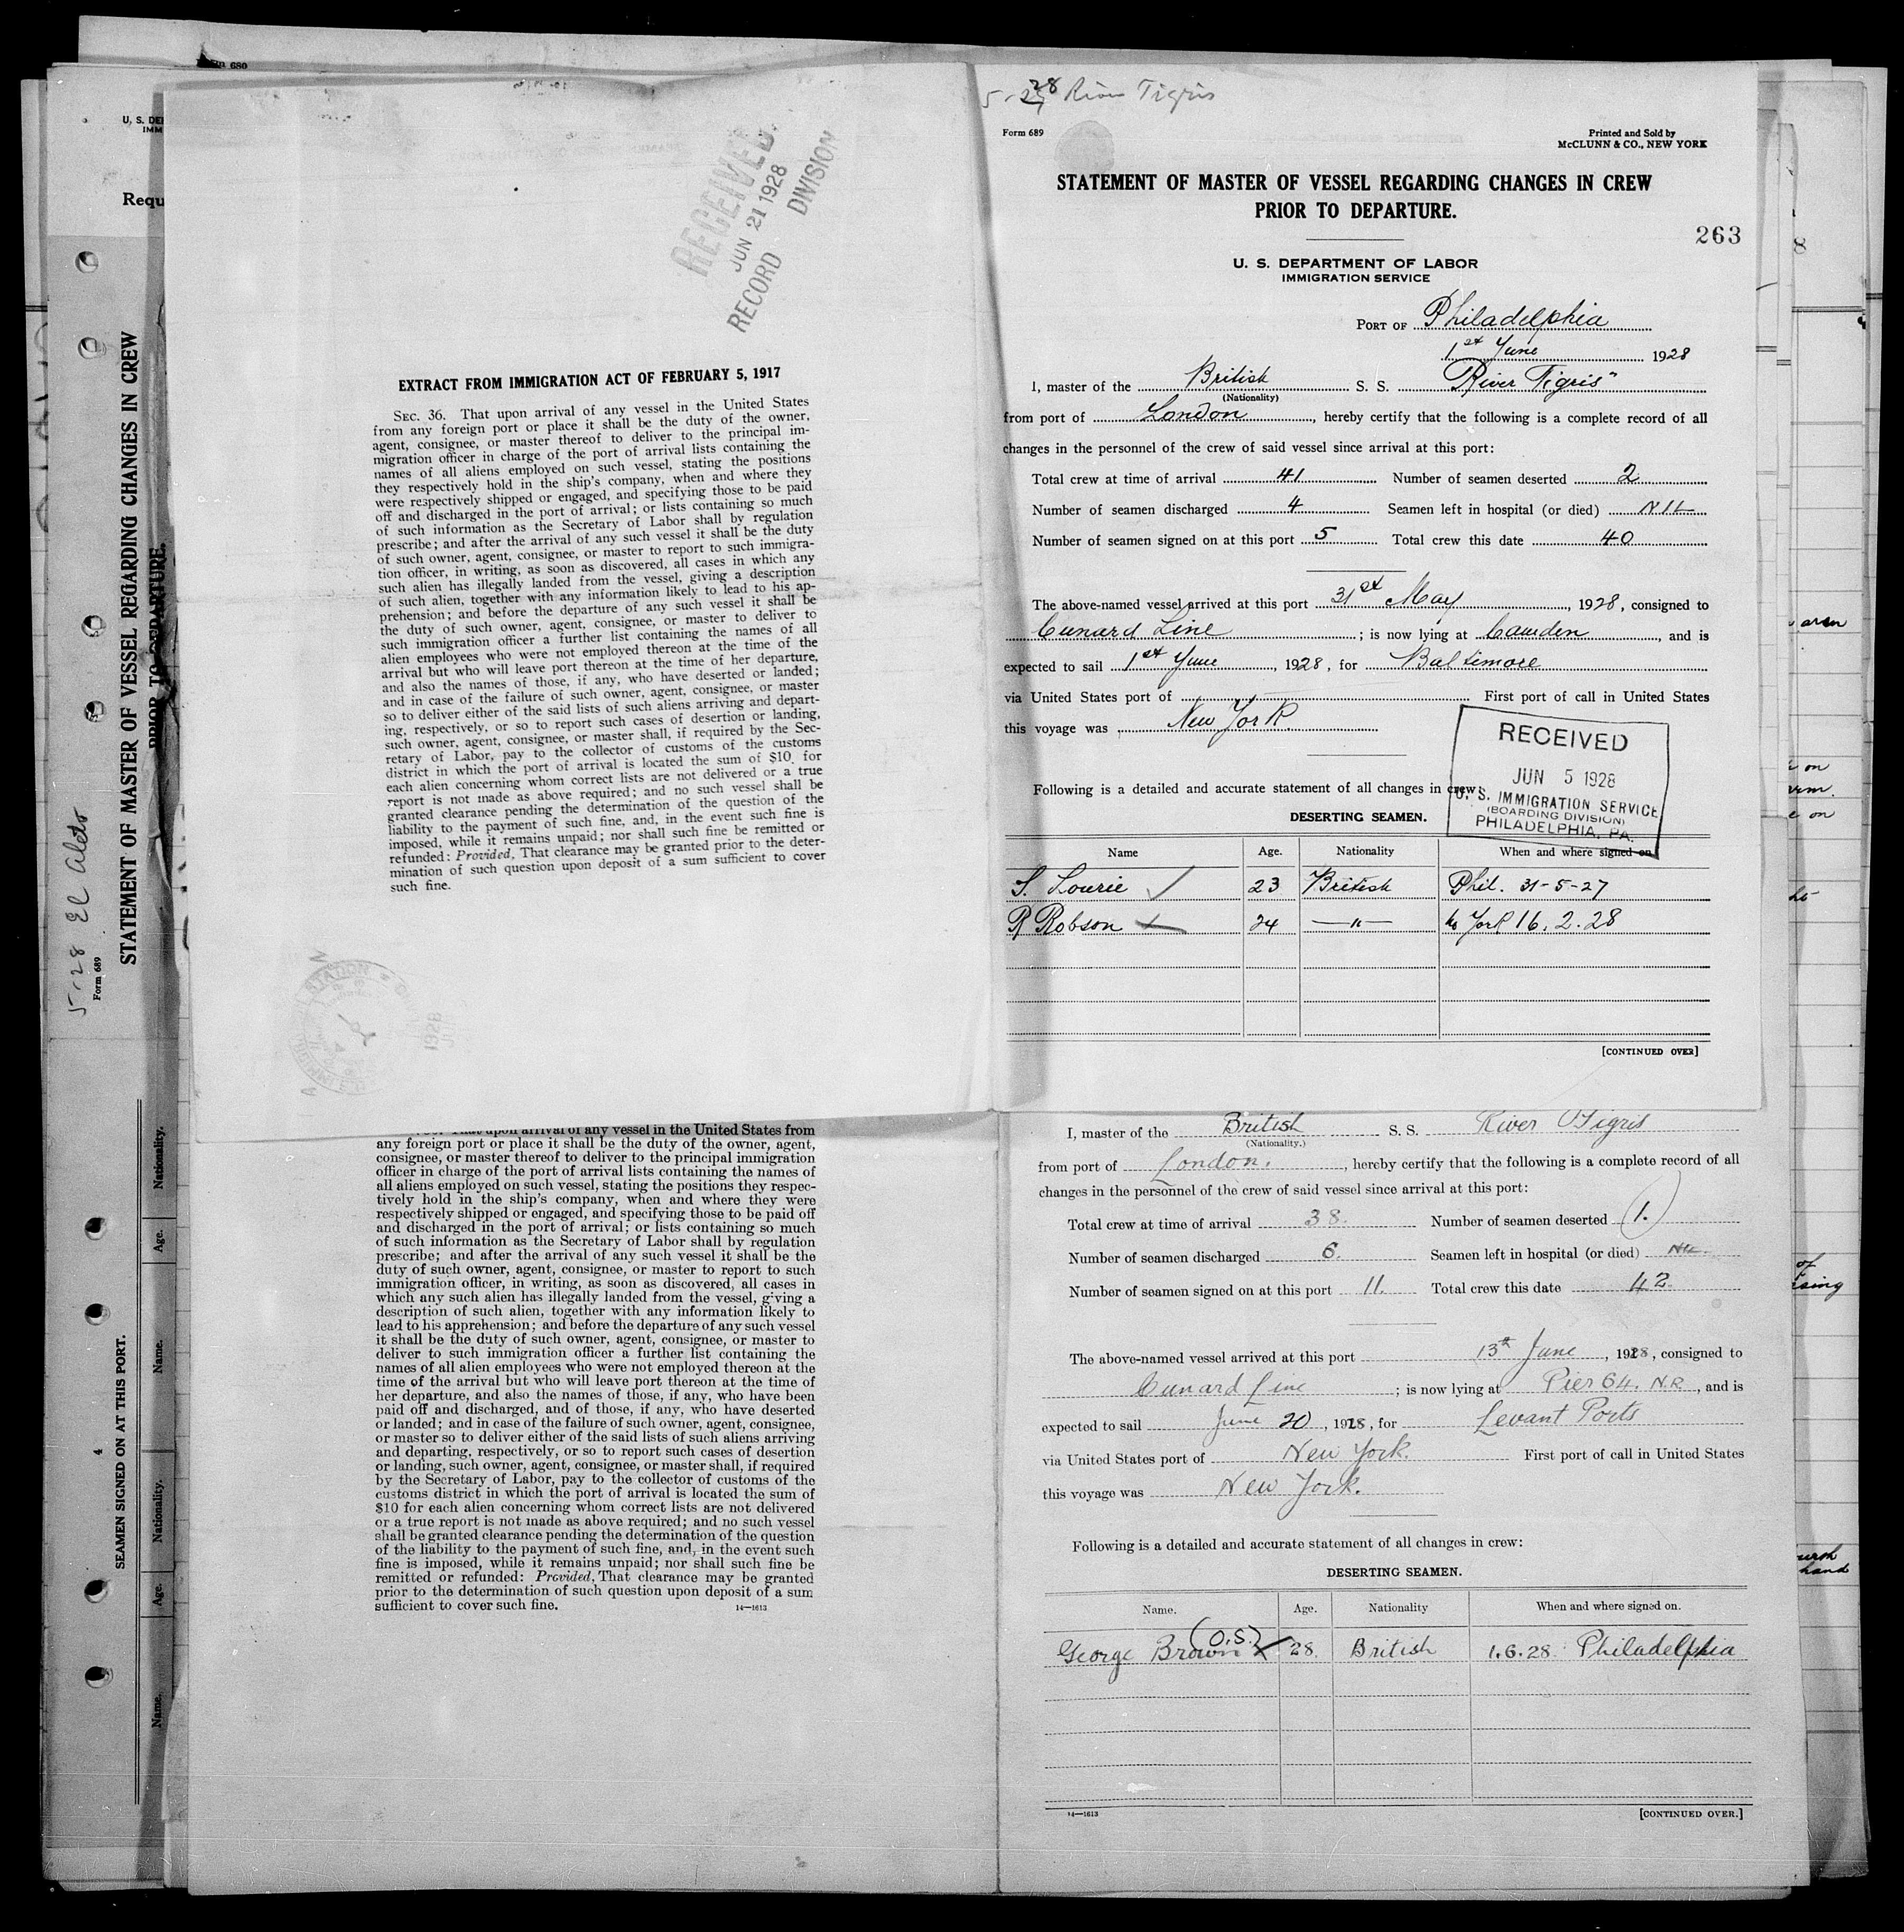 5-28 River Tigris
Form 689
Printed and Sold by
McCLUNN & CO., NEW YORK
STATEMENT OF MASTER OF VESSEL REGARDING CHANGES IN CREW
PRIOR TO DEPARTURE.
263
U. S. DEPARTMENT OF LABOR
IMMIGRATION SERVICE
PORT OF Philadelphia
1st June 1928
I, master of the British S. S. River Tigris"
(Nationality)
from port of London, hereby certify that the following is a complete record of all
changes in the personnel of the crew of said vessel since arrival at this port:
Total crew at time of arrival 41 Number of seamen deserted 2
Number of seamen discharged 4 Seamen left in hospital (or died) NIL
Number of seamen signed on at this port 5 Total crew this date 40
The above-named vessel arrived at this port 31st May, 1928, consigned to
Cunard Line; is now lying at Camden, and is
expected to sail 1st June, 1928, for Baltimore
via United States port of First port of call in United States
this voyage was New York
RECEIVED
JUN 5 1928
U. S. IMMIGRATION SERVICE
(BOARDING DIVISION)
PHILADELPHIA, PA.
Following is a detailed and accurate statement of all changes in crew:
DESERTING SEAMEN.
Name Age. Nationality When and where signed on
S. Lourie 23 British Phil. 31-5-27
R Robson 24 —"— N York 16.2.28
[CONTINUED OVER]
RECEIVED
JUN 21 1928
RECORD DIVISION
EXTRACT FROM IMMIGRATION ACT OF FEBRUARY 5, 1917
SEC. 36. That upon arrival of any vessel in the United States
from any foreign port or place it shall be the duty of the owner,
agent, consignee, or master thereof to deliver to the principal im-
migration officer in charge of the port of arrival lists containing the
names of all aliens employed on such vessel, stating the positions
they respectively hold in the ship's company, when and where they
were respectively shipped or engaged, and specifying those to be paid
off and discharged in the port of arrival; or lists containing so much
of such information as the Secretary of Labor shall by regulation
prescribe; and after the arrival of any such vessel it shall be the duty
of such owner, agent, consignee, or master to report to such immigra-
tion officer, in writing, as soon as discovered, all cases in which any
such alien has illegally landed from the vessel, giving a description
of such alien, together with any information likely to lead to his ap-
prehension; and before the departure of any such vessel it shall be
the duty of such owner, agent, consignee, or master to deliver to
such immigration officer a further list containing the names of all
alien employees who were not employed thereon at the time of the
arrival but who will leave port thereon at the time of her departure,
and also the names of those, if any, who have deserted or landed;
and in case of the failure of such owner, agent, consignee, or master
so to deliver either of the said lists of such aliens arriving and depart-
ing, respectively, or so to report such cases of desertion or landing,
such owner, agent, consignee, or master shall, if required by the Sec-
retary of Labor, pay to the collector of customs of the customs
district in which the port of arrival is located the sum of $10 for
each alien concerning whom correct lists are not delivered or a true
report is not made as above required; and no such vessel shall be
granted clearance pending the determination of the question of the
liability to the payment of such fine, and, in the event such fine is
imposed, while it remains unpaid; nor shall such fine be remitted or
refunded: Provided, That clearance may be granted prior to the deter-
mination of such question upon deposit of a sum sufficient to cover
such fine.
That upon arrival of any vessel in the United States from
any foreign port or place it shall be the duty of the owner, agent,
consignee, or master thereof to deliver to the principal immigration
officer in charge of the port of arrival lists containing the names of
all aliens employed on such vessel, stating the positions they respec-
tively hold in the ship's company, when and where they were
respectively shipped or engaged, and specifying those to be paid off
and discharged in the port of arrival; or lists containing so much
of such information as the Secretary of Labor shall by regulation
prescribe; and after the arrival of any such vessel it shall be the
duty of such owner, agent, consignee, or master to report to such
immigration officer, in writing, as soon as discovered, all cases in
which any such alien has illegally landed from the vessel, giving a
description of such alien, together with any information likely to
lead to his apprehension; and before the departure of any such vessel
it shall be the duty of such owner, agent, consignee, or master to
deliver to such immigration officer a further list containing the
names of all alien employees who were not employed thereon at the
time of the arrival but who will leave port thereon at the time of
her departure, and also the names of those, if any, who have been
paid off and discharged, and of those, if any, who have deserted
or landed; and in case of the failure of such owner, agent, consignee,
or master so to deliver either of the said lists of such aliens arriving
and departing, respectively, or so to report such cases of desertion
or landing, such owner, agent, consignee, or master shall, if required
by the Secretary of Labor, pay to the collector of customs of the
customs district in which the port of arrival is located the sum of
$10 for each alien concerning whom correct lists are not delivered
or a true report is not made as above required; and no such vessel
shall be granted clearance pending the determination of the question
of the liability to the payment of such fine, and, in the event such
fine is imposed, while it remains unpaid; nor shall such fine be
remitted or refunded: Provided, That clearance may be granted
prior to the determination of such question upon deposit of a sum
sufficient to cover such fine.
14—1613
I, master of the British S. S. River Tigris
(Nationality.)
from port of London., hereby certify that the following is a complete record of all
changes in the personnel of the crew of said vessel since arrival at this port:
Total crew at time of arrival 38. Number of seamen deserted 1.
Number of seamen discharged 6. Seamen left in hospital (or died) NIL.
Number of seamen signed on at this port 11. Total crew this date 42.
The above-named vessel arrived at this port 13th June, 1928, consigned to
Cunard Line; is now lying at Pier 64. N.R., and is
expected to sail June 20, 1928, for Levant Ports
via United States port of New York. First port of call in United States
this voyage was New York.
Following is a detailed and accurate statement of all changes in crew:
DESERTING SEAMEN.
Name. Age. Nationality When and where signed on.
George Brown (O.S.) 28. British 1.6.28. Philadelphia
14—1613
[CONTINUED OVER.]
5-28 El Aleto
Form 689
STATEMENT OF MASTER OF VESSEL REGARDING CHANGES IN CREW
PRIOR TO DEPARTURE.
4
SEAMEN SIGNED ON AT THIS PORT.
Name. Age. Nationality. Name. Age. Nationality.